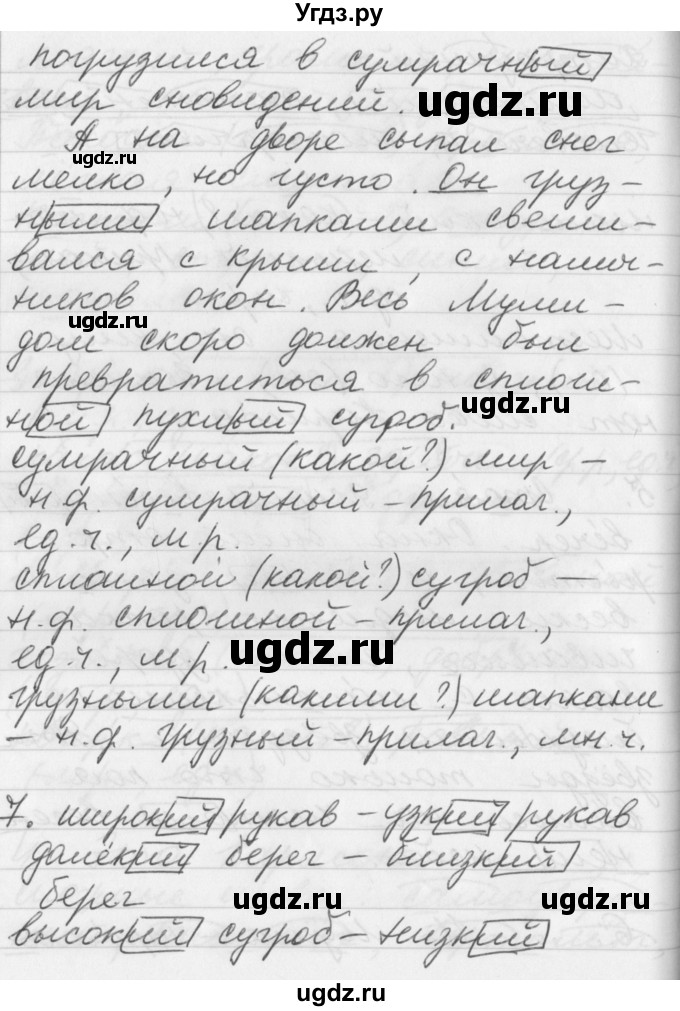 Угдз.ру
погрузился в сумрачный
мир сновидений.
ugdz.ru
А на дворе сыпал снег
ugdz.ru
мелко, но густо. Он груз-
ными шапками свеши-
вался с крыши, с налич-
ников окон. Весь Муми-
ugdz.ru
дом скоро должен был
превратиться в сплош-
ugdz.ru
ной пухлый сугроб.
сумрачный (какой?) мир –
н.ф. сумрачный – прилаг.,
ед.ч., м.р.
сплошной (какой?) сугроб –
н.ф. сплошной – прилаг.,
ugdz.ru
ед.ч., м.р.
грузными (какими?) шапками
– н.ф. грузный – прилаг., мн.ч.
7. широкий рукав – узкий рукав
далёкий берег – близкий
берег
ugdz.ru
ugdz.ru
высокий сугроб – низкий
ugdz.ru